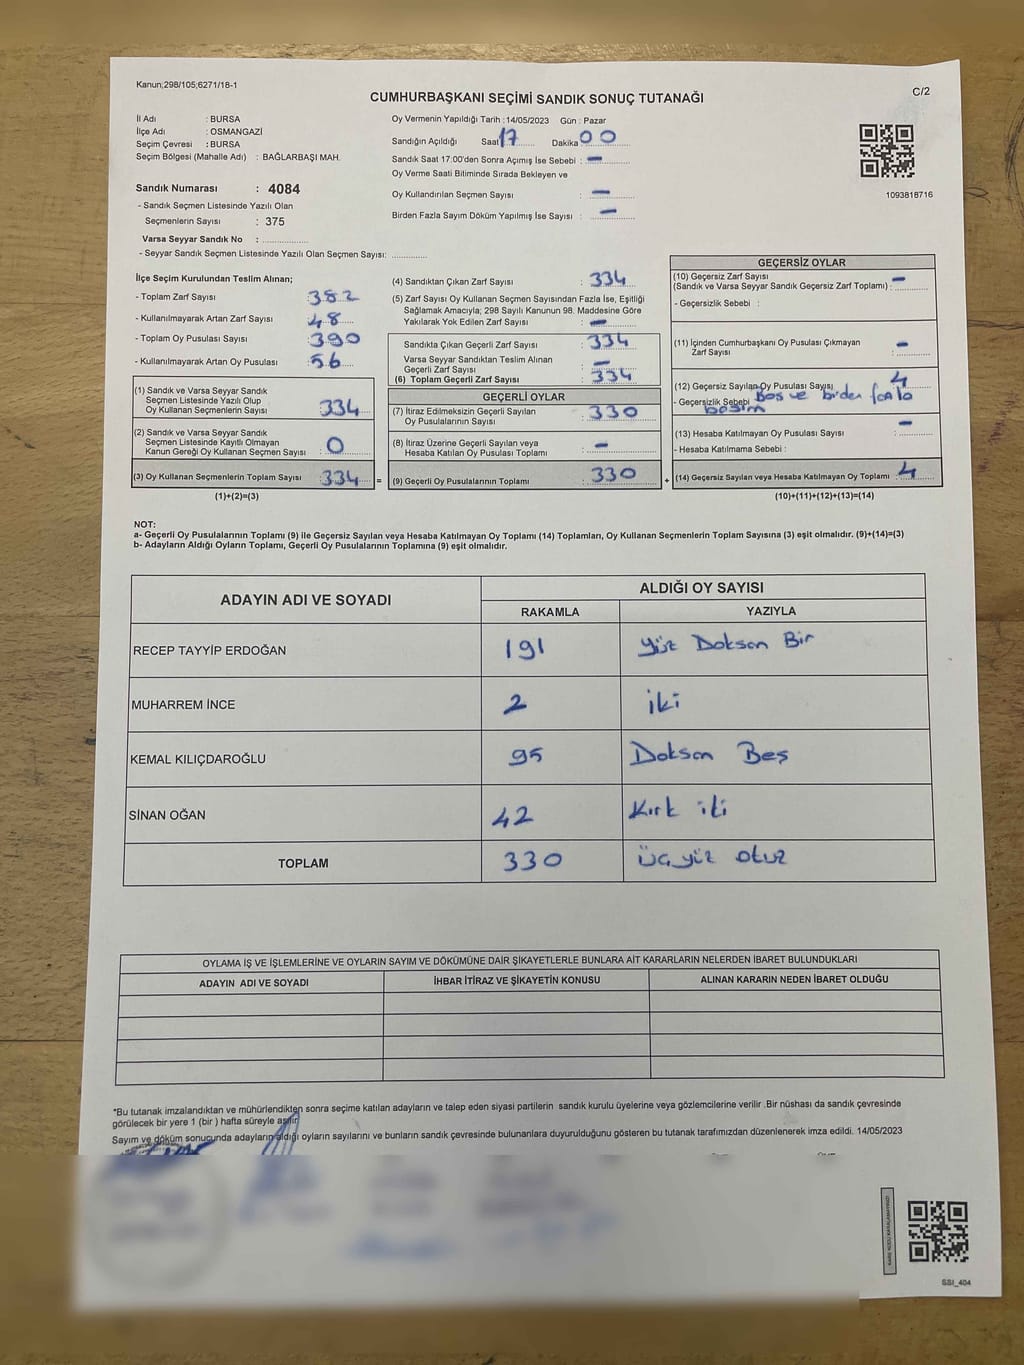 Kanun;298/105;6271/18-1
CUMHURBAŞKANI SEÇİMİ SANDIK SONUÇ TUTANAĞI
C/2
İl Adı : BURSA
İlçe Adı : OSMANGAZİ
Seçim Çevresi : BURSA
Seçim Bölgesi (Mahalle Adı) : BAĞLARBAŞI MAH.
Sandık Numarası : 4084
- Sandık Seçmen Listesinde Yazılı Olan
Seçmenlerin Sayısı : 375
Varsa Seyyar Sandık No : ................
- Seyyar Sandık Seçmen Listesinde Yazılı Olan Seçmen Sayısı: ............
Oy Vermenin Yapıldığı Tarih :14/05/2023 Gün : Pazar
Sandığın Açıldığı Saat 17 Dakika 00
Sandık Saat 17:00'den Sonra Açımış İse Sebebi : –
Oy Verme Saati Bitiminde Sırada Bekleyen ve
Oy Kullandırılan Seçmen Sayısı : –
Birden Fazla Sayım Döküm Yapılmış İse Sayısı : –
1093818716
İlçe Seçim Kurulundan Teslim Alınan;
- Toplam Zarf Sayısı : 382
- Kullanılmayarak Artan Zarf Sayısı : 48
- Toplam Oy Pusulası Sayısı : 390
- Kullanılmayarak Artan Oy Pusulası : 56
(1) Sandık ve Varsa Seyyar Sandık
Seçmen Listesinde Yazılı Olup
Oy Kullanan Seçmenlerin Sayısı 334
(2) Sandık ve Varsa Seyyar Sandık
Seçmen Listesinde Kayıtlı Olmayan
Kanun Gereği Oy Kullanan Seçmen Sayısı : 0
(3) Oy Kullanan Seçmenlerin Toplam Sayısı 334 =
(1)+(2)=(3)
(4) Sandıktan Çıkan Zarf Sayısı : 334
(5) Zarf Sayısı Oy Kullanan Seçmen Sayısından Fazla İse, Eşitliği
Sağlamak Amacıyla; 298 Sayılı Kanunun 98. Maddesine Göre
Yakılarak Yok Edilen Zarf Sayısı : –
Sandıkta Çıkan Geçerli Zarf Sayısı : 334
Varsa Seyyar Sandıktan Teslim Alınan
Geçerli Zarf Sayısı : –
(6) Toplam Geçerli Zarf Sayısı : 334
GEÇERLİ OYLAR
(7) İtiraz Edilmeksizin Geçerli Sayılan
Oy Pusulalarının Sayısı : 330
(8) İtiraz Üzerine Geçerli Sayılan veya
Hesaba Katılan Oy Pusulası Toplamı : –
(9) Geçerli Oy Pusulalarının Toplamı : 330 +
GEÇERSİZ OYLAR
(10) Geçersiz Zarf Sayısı
(Sandık ve Varsa Seyyar Sandık Geçersiz Zarf Toplamı) : –
- Geçersizlik Sebebi :
(11) İçinden Cumhurbaşkanı Oy Pusulası Çıkmayan
Zarf Sayısı : –
(12) Geçersiz Sayılan Oy Pusulası Sayısı 4
- Geçersizlik Sebebi Boş ve birden fazla
basım
(13) Hesaba Katılmayan Oy Pusulası Sayısı : –
- Hesaba Katılmama Sebebi :
(14) Geçersiz Sayılan veya Hesaba Katılmayan Oy Toplamı : 4
(10)+(11)+(12)+(13)=(14)
NOT:
a- Geçerli Oy Pusulalarının Toplamı (9) ile Geçersiz Sayılan veya Hesaba Katılmayan Oy Toplamı (14) Toplamları, Oy Kullanan Seçmenlerin Toplam Sayısına (3) eşit olmalıdır. (9)+(14)=(3)
b- Adayların Aldığı Oyların Toplamı, Geçerli Oy Pusulalarının Toplamına (9) eşit olmalıdır.
ADAYIN ADI VE SOYADI ALDIĞI OY SAYISI
RAKAMLA YAZIYLA
RECEP TAYYİP ERDOĞAN 191 Yüz Doksan Bir
MUHARREM İNCE 2 iki
KEMAL KILIÇDAROĞLU 95 Doksan Beş
SİNAN OĞAN 42 Kırk iki
TOPLAM 330 üçyüz otuz
OYLAMA İŞ VE İŞLEMLERİNE VE OYLARIN SAYIM VE DÖKÜMÜNE DAİR ŞİKAYETLERLE BUNLARA AİT KARARLARIN NELERDEN İBARET BULUNDUKLARI
ADAYIN ADI VE SOYADI İHBAR İTİRAZ VE ŞİKAYETİN KONUSU ALINAN KARARIN NEDEN İBARET OLDUĞU
*Bu tutanak imzalandıktan ve mühürlendikten sonra seçime katılan adayların ve talep eden siyasi partilerin sandık kurulu üyelerine veya gözlemcilerine verilir .Bir nüshası da sandık çevresinde
görülecek bir yere 1 (bir ) hafta süreyle asılır.
Sayım ve döküm sonucunda adayların aldığı oyların sayılarını ve bunların sandık çevresinde bulunanlara duyurulduğunu gösteren bu tutanak tarafımızdan düzenlenerek imza edildi. 14/05/2023
SSI_404